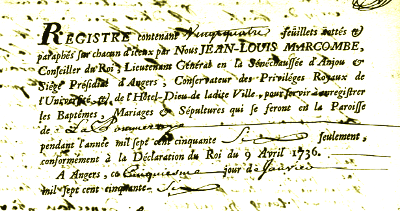 REGISTRE contenant Vingtquatre feuillets cottés &
paraphés sur chacun d'iceux par Nous JEAN-LOUIS MARCOMBE,
Conseiller du Roi; Lieutenant Général en la Sénéchaussée d'Anjou &
Siége Présidial d'Angers, Conservateur des Priviléges Royaux de
l'Université, &, de l'Hôtel-Dieu de ladite Ville, pour servir à enregistrer
les Baptêmes, Mariages & Sépultures qui se feront en la Paroisse
de La Pommeraye
pendant l'année mil sept cent cinquante Six seulement,
conformément à la Déclaration du Roi du 9 Avril 1736.
A Angers, ce Cinquiesme jour de Janvier
mil sept cent cinquante Six